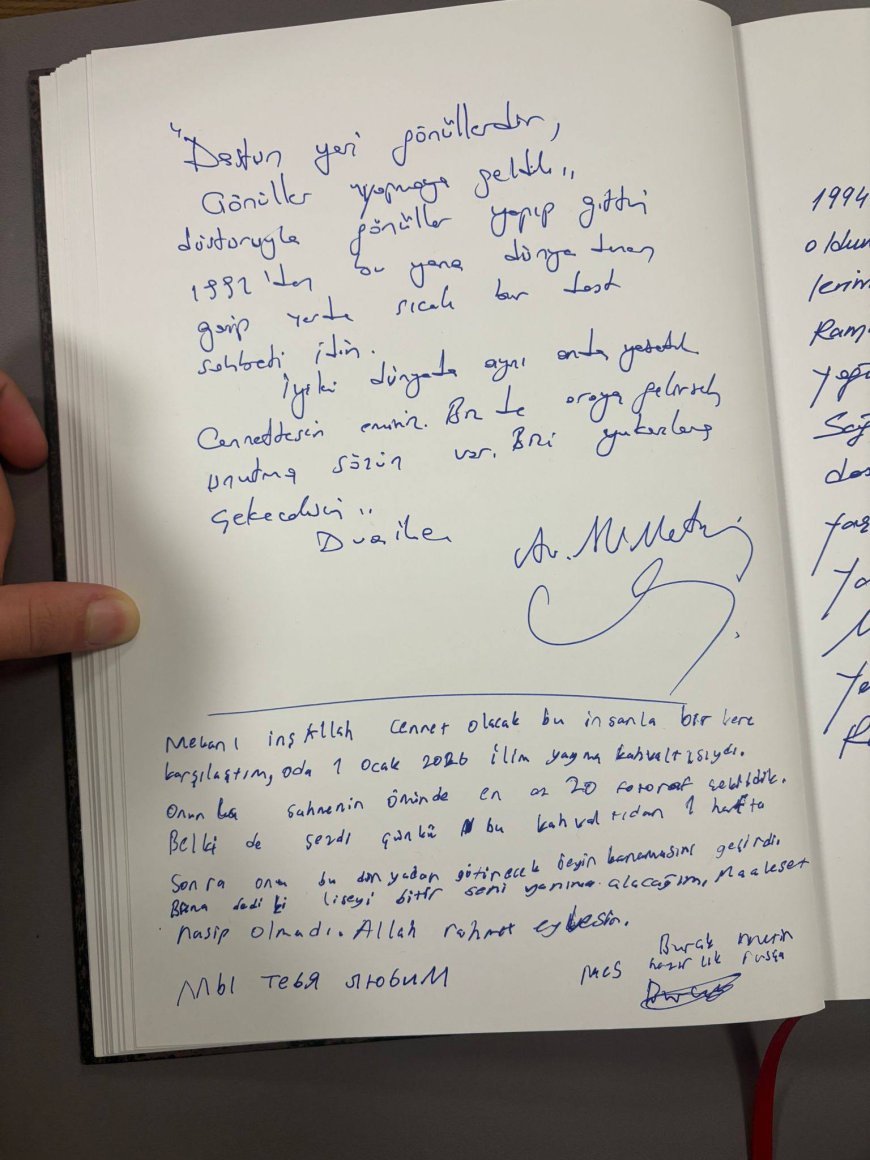 "Dostun yeri gönüllerdir,
Gönüller yapmaya geldik"
düsturuyla gönüller yapıp gittin
1992'den bu yana dünya denen
garip yerde sıcak bir dost
sohbeti idin.
İyiki dünyada aynı anda yaşadık
Cennettesin eminiz. Biz de oraya gelirsek
unutma sözün var. Bizi yukarılara
çekeceksin"
Dua ile
Av. M. Metin
Mekanı inşAllah cennet olacak bu insanla bir kere
karşılaştım, oda 1 Ocak 2026 ilim yayma kahvaltısıydı.
Onunla sahnenin önünde en az 20 fotoraf çekildik.
Belki de sezdi çünkü bu kahvaltıdan 1 hafta
Sonra onu bu dünyadan götürecek beyin kanamasını geçirdi.
Bana dedi ki liseyi bitir seni yanıma alacağım, Maalesef
nasip olmadı. Allah rahmet eylesin.
Burak
hazırlık rusça
Мы тебя любим
1994
oldu
lerim
Rama
yoğu
Sağ
dos